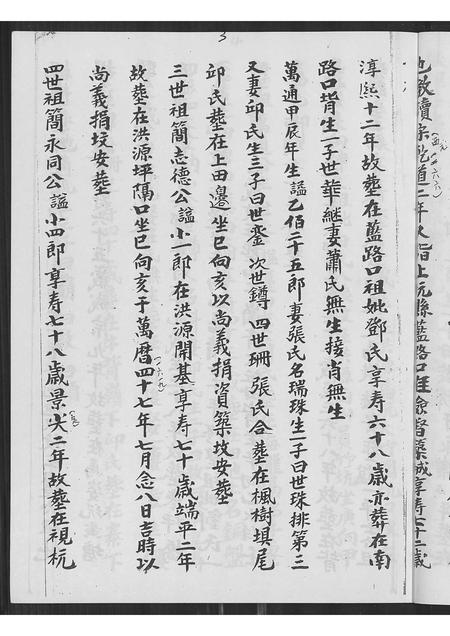 3
淳熙十二年故塟在藍路口祖妣鄧氏享寿六十八歲亦葬在南
路口背生一子世華継妻蕭氏無生接肖無生
萬通甲辰年生謚乙佰二十五郎妻張氏名瑞珠生一子曰世珠排第三
又妻邱氏生三子曰世鎏 次世鐏 四世珊 張氏合塟在楓樹垻尾
邱氏塟在上田邊坐巳向亥以尚義捐資築坟安塟
三世祖簡志德公謚小一郎在洪源開基享寿七十歲端平二年
故塟在洪源坪隔口坐巳向亥于萬曆四十七年七月念八日吉時以
尚義捐坟安塟
四世祖簡永同公謚小四郎享寿七十八歲景炎二年故塟在視杬